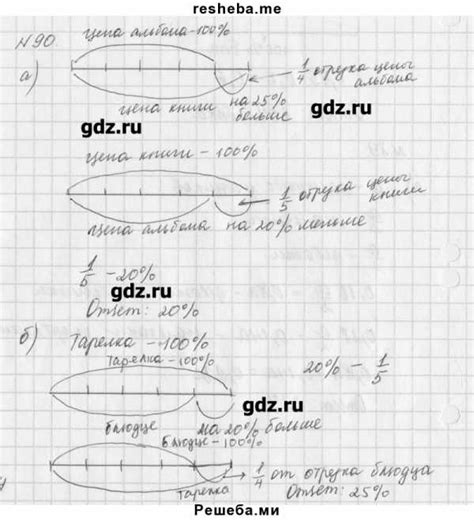 resheba.me
N90.
цена альбома - 100%
а)
1/4 отрезка цены
альбома
цена книги на 25%
больше
gdz.ru
цена книги - 100%
1/5 отрезка цены
книги
цена альбома на 20% меньше
gdz.ru
1/5 - 20%
Ответ: 20%
б) Тарелка - 100%
Тарелка - 100%
20% - 1/5
gdz.ru
блюдце на 20% больше
блюдце - 100%
1/4 от отрезка блюдца
тарелка
Ответ: 25%
Решеба.ми